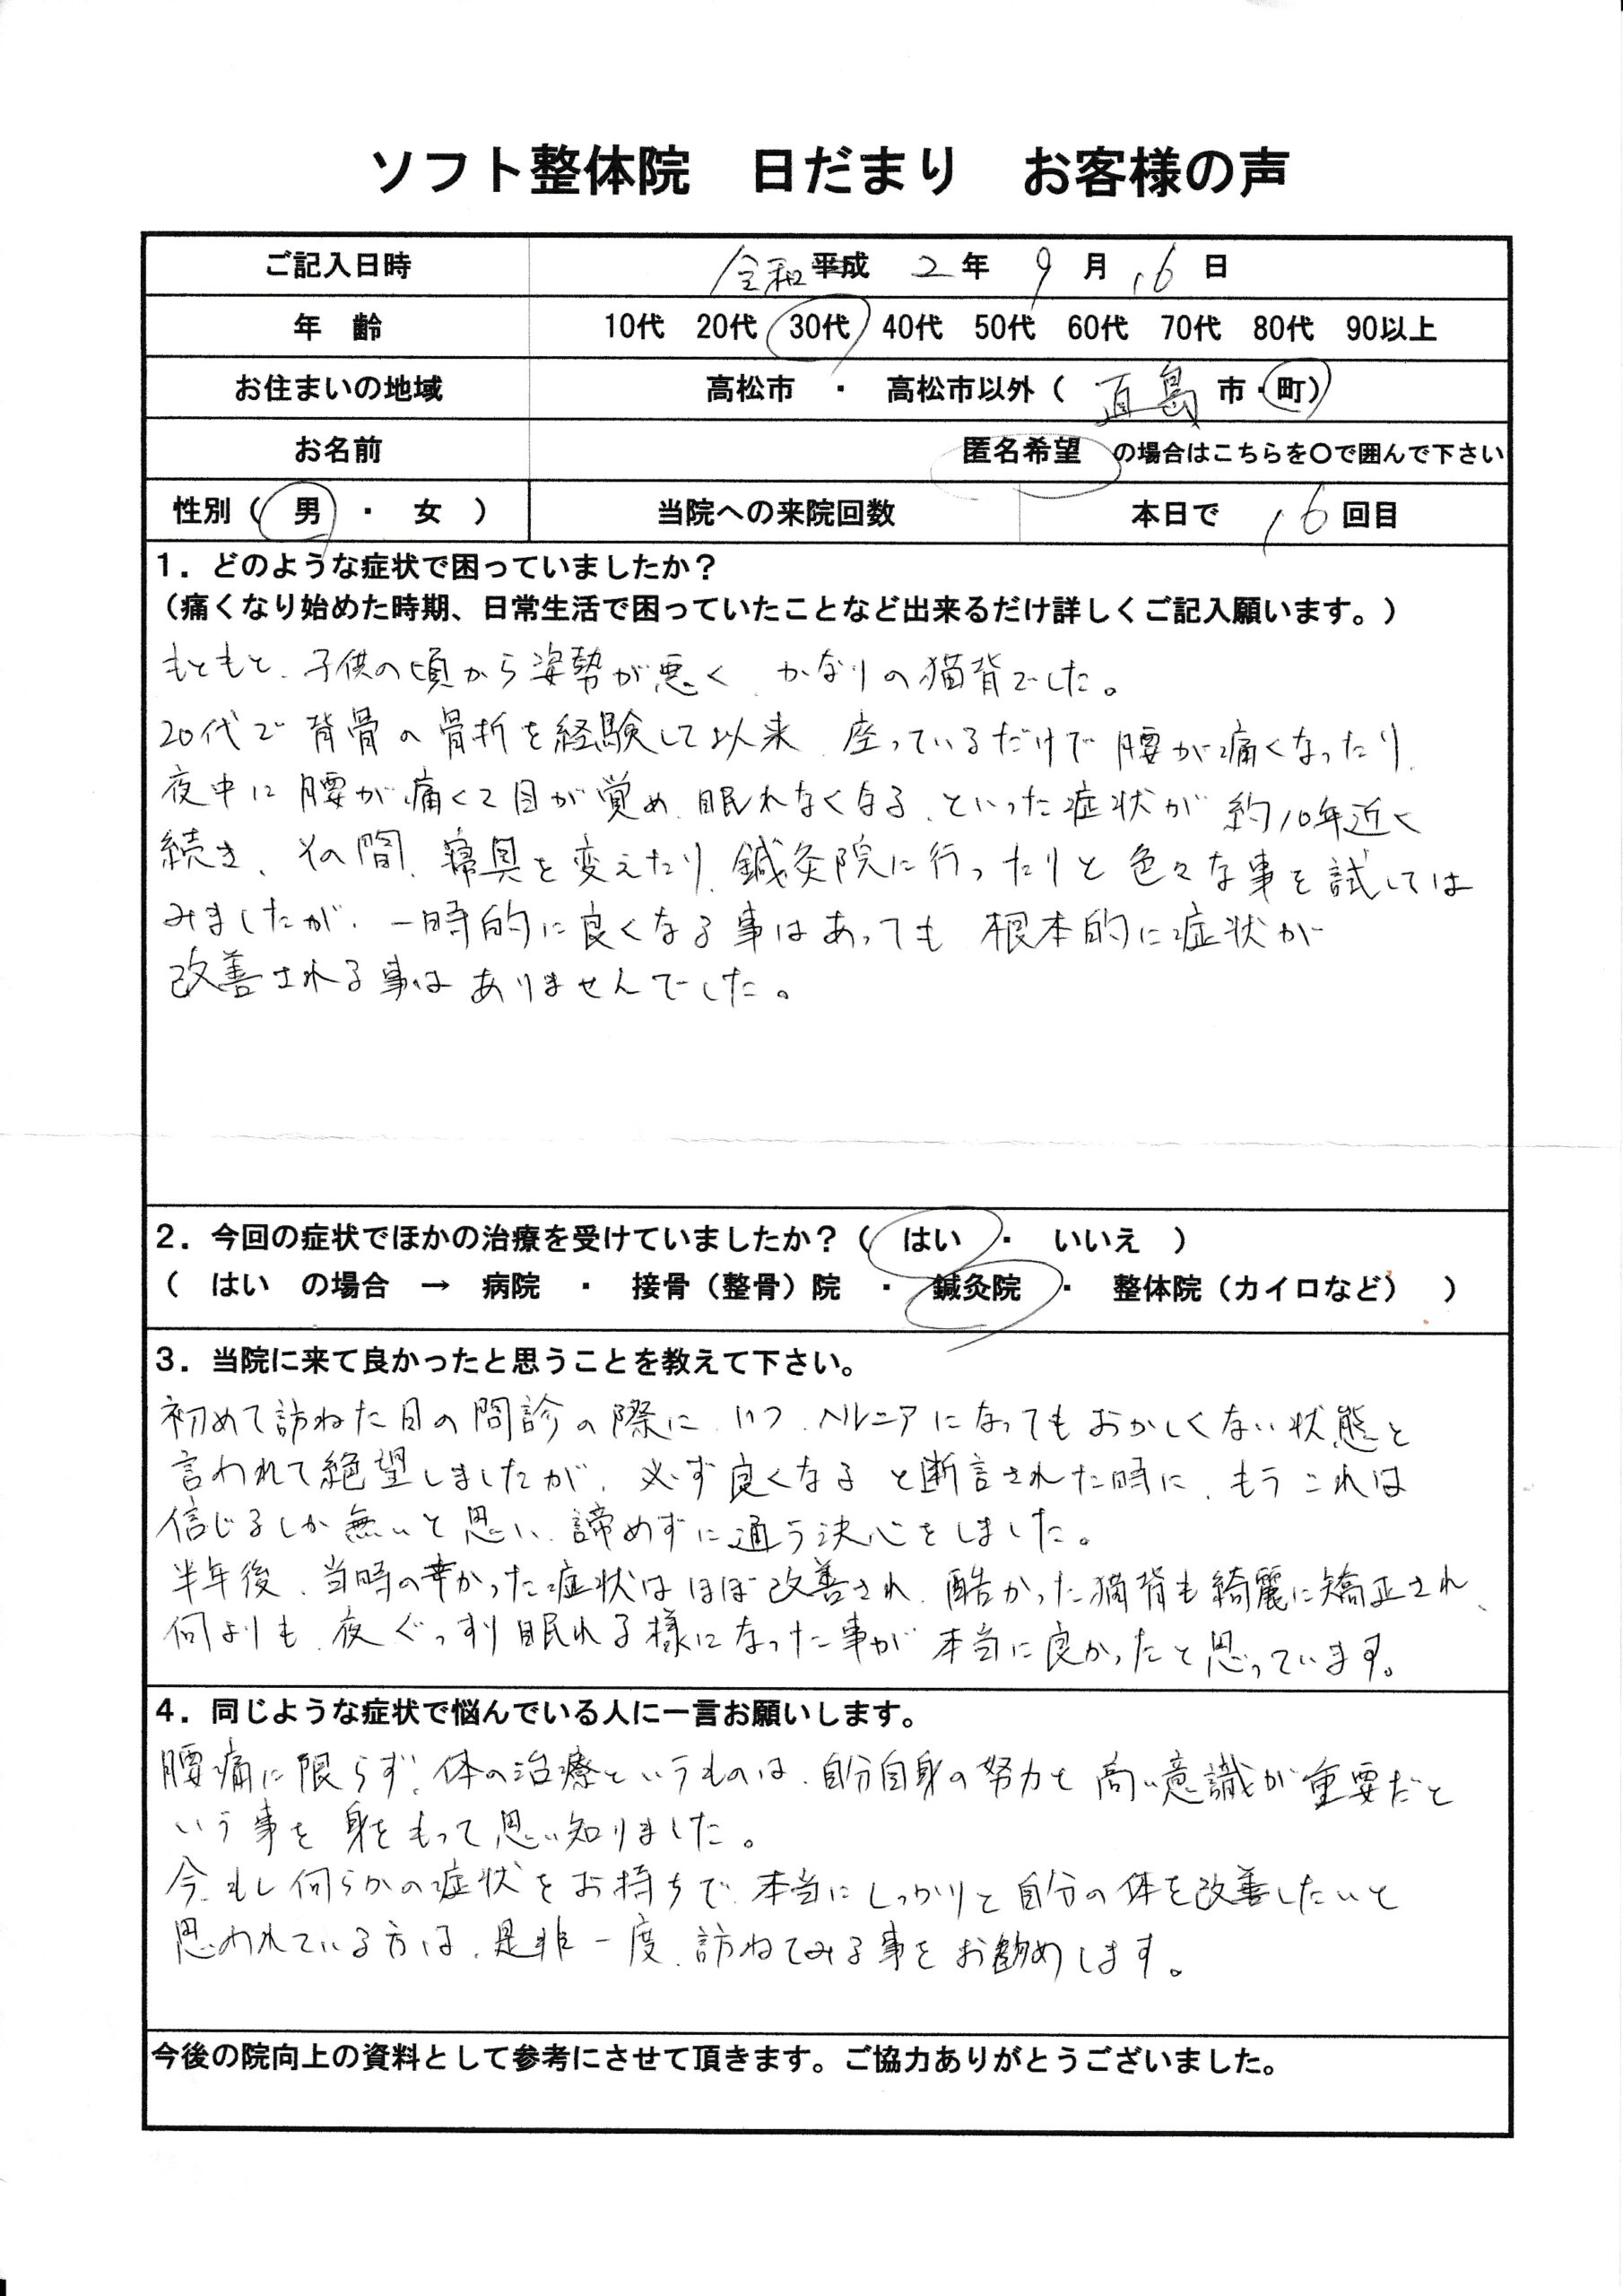 ソフト整体院 日だまり お客様の声
ご記入日時 令和 平成 2年 9月 16日
年 齢 10代 20代 30代 40代 50代 60代 70代 80代 90以上
お住まいの地域 高松市 ・ 高松市以外( 直島 市・町)
お名前 匿名希望 の場合はこちらを〇で囲んで下さい
性別( 男 ・ 女 ) 当院への来院回数 本日で 16 回目
1．どのような症状で困っていましたか？
（痛くなり始めた時期、日常生活で困っていたことなど出来るだけ詳しくご記入願います。）
もともと、子供の頃から姿勢が悪く、かなりの猫背でした。
20代で背骨の骨折を経験して以来、座っているだけで腰が痛くなったり、
夜中に腰が痛くて目が覚め、眠れなくなる、といった症状が約10年近く
続き、その間、寝具を変えたり、鍼灸院に行ったりと色々な事を試しては
みましたが、一時的に良くなる事はあっても根本的に症状が
改善される事はありませんでした。
2．今回の症状でほかの治療を受けていましたか？( はい ・ いいえ )
( はい の場合 → 病院 ・ 接骨（整骨）院 ・ 鍼灸院 ・ 整体院（カイロなど） )
3．当院に来て良かったと思うことを教えて下さい。
初めて訪ねた日の問診の際に、いつ、ヘルニアになってもおかしくない状態と
言われて絶望しましたが、必ず良くなると断言された時に、もうこれは
信じるしか無いと思い、諦めずに通う決心をしました。
半年後、当時の辛かった症状はほぼ改善され、酷かった猫背も綺麗に矯正され、
何よりも、夜ぐっすり眠れる様になった事が本当に良かったと思っています。
4．同じような症状で悩んでいる人に一言お願いします。
腰痛に限らず、体の治療というものは、自分自身の努力と高い意識が重要だと
いう事を身をもって思い知りました。
今、もし何らかの症状をお持ちで、本当にしっかりと自分の体を改善したいと
思われている方は、是非一度、訪ねてみる事をお勧めします。
今後の院向上の資料として参考にさせて頂きます。ご協力ありがとうございました。